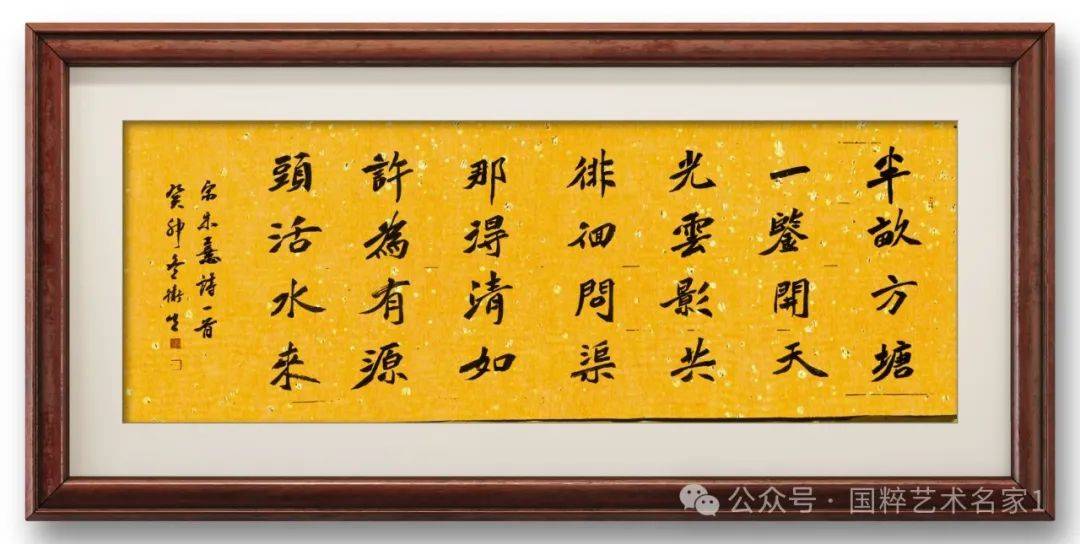 半畝方塘
一鑒開天
光雲影共
徘徊問渠
那得清如
許為有源
頭活水來
宋朱熹詩一首
癸卯冬衛生
公众号 · 国粹艺术名家1